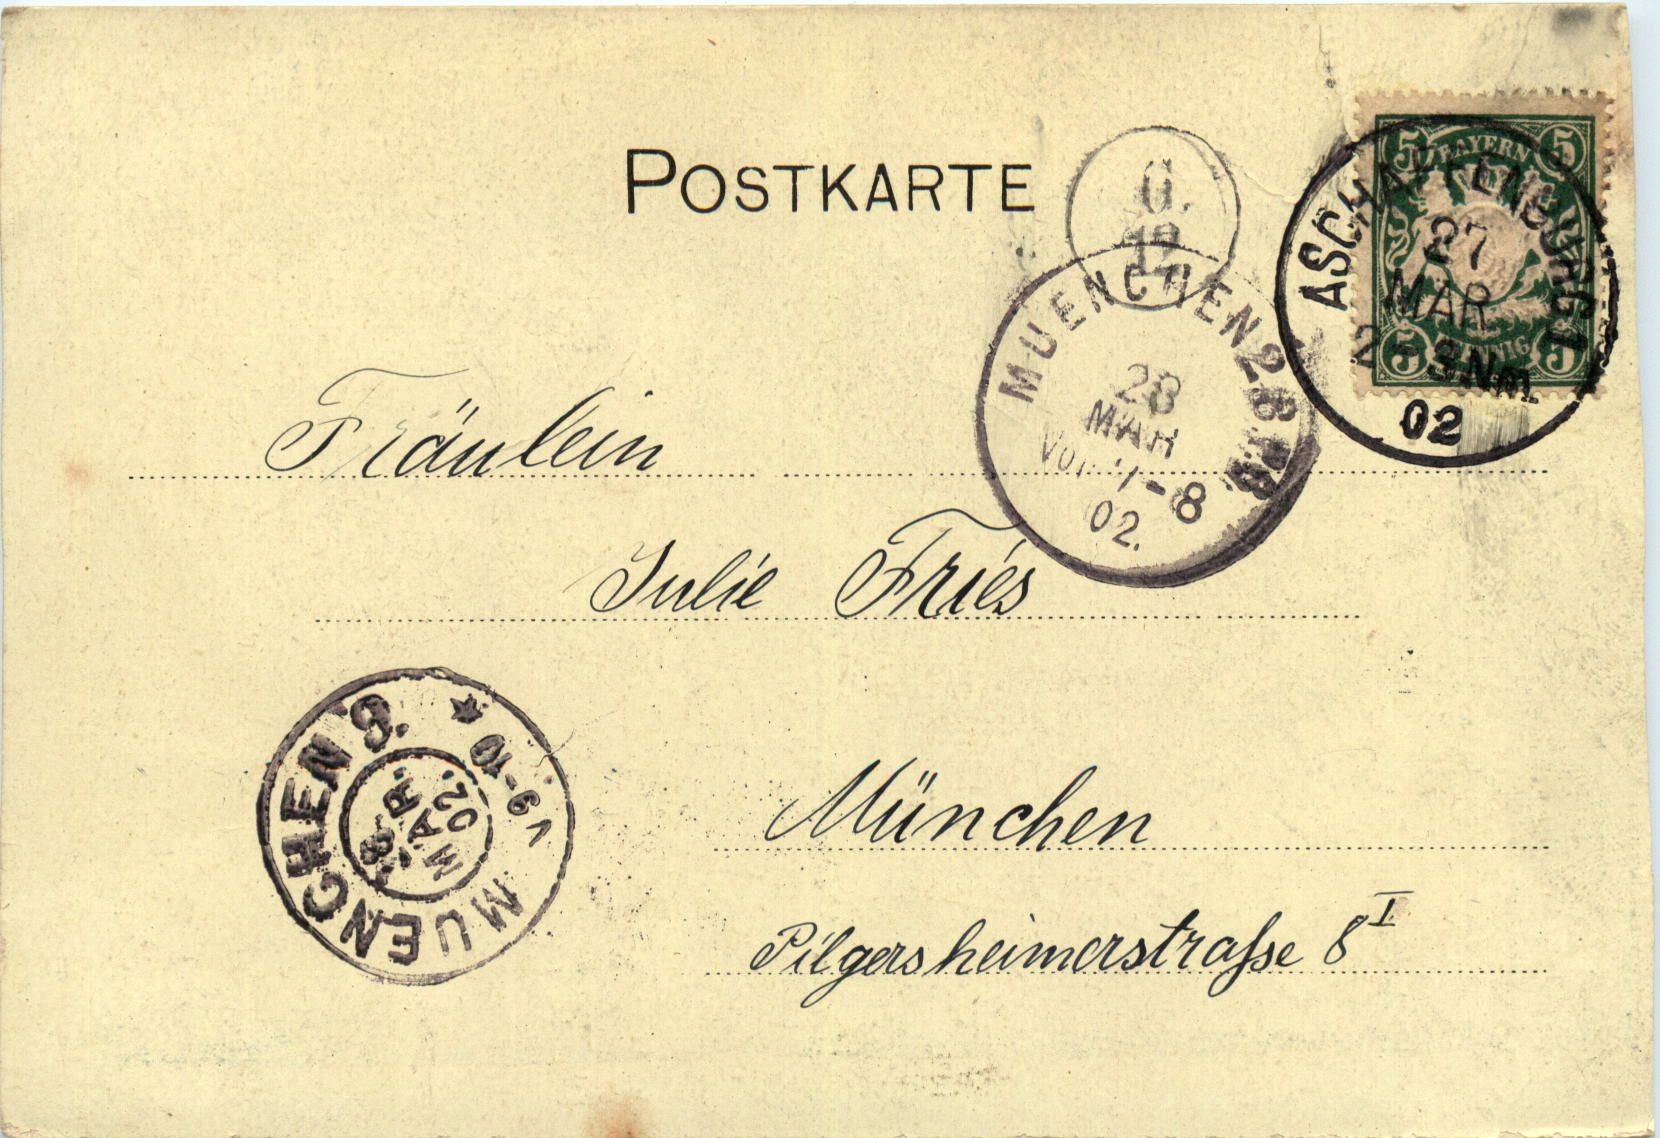 POSTKARTE
G.
12
5 BAYERN 5
5 PFENNIG 5
ASCHAFFENBURG 1
27
MAR
2 - 3 Nm.
02
MUENCHEN 2 B.
28
MAR
8
02.
Fräulein
Julie Fries
MUENCHEN 9.
28
MAR.
02.
V 9-10
München
Pilgersheimerstraſse 8 I